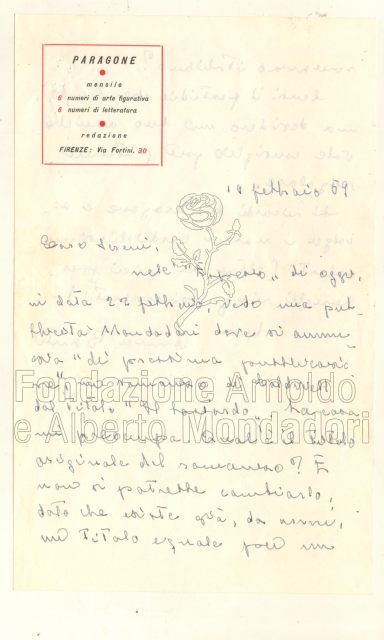 PARAGONE
mensile
6 numeri di arte figurativa
6 numeri di letteratura
redazione
FIRENZE: Via Fortini, 30
febbraio 59
Caro Sereni,
nell' "Espresso" di oggi,
in data 22 febbraio, vedo una pub-
blicità Mondadori dove si annun-
cia "di prossima pubblicazio
ne", un romanzo di Caldwell
dal titolo "Il bastardo".
Qual è il titolo
originale del romanzo? E
non si potrebbe cambiarlo,
dato che esiste già, da anni,
un titolo eguale per un
Fondazione Arnoldo
e Alberto Mondadori